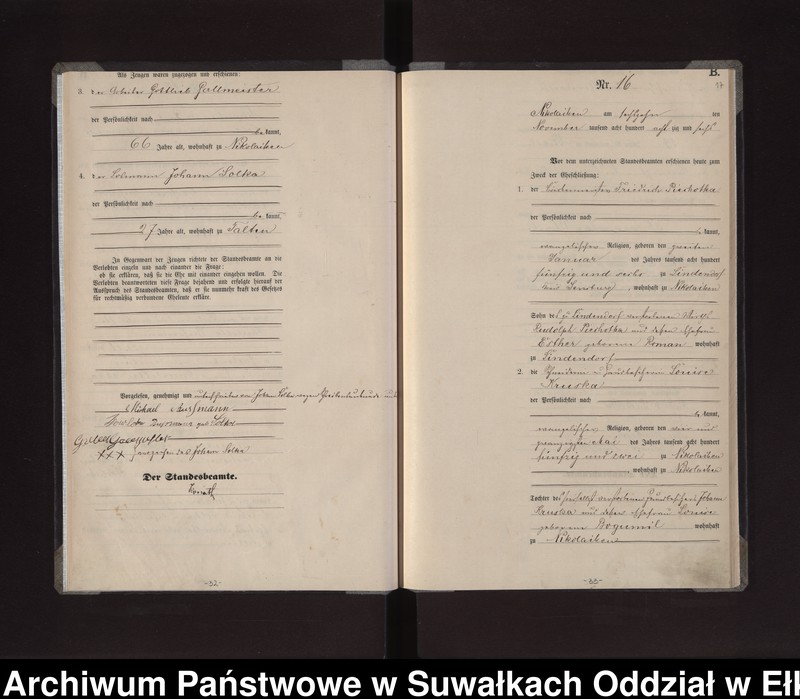 Als Zeugen waren zugezogen und erschienen:
3. der Gottlieb Gallmeister
der Persönlichkeit nach
be kannt,
66 Jahre alt, wohnhaft zu Nikolaiken
4. der Losmann Johann Solka
der Persönlichkeit nach
be kannt,
27 Jahre alt, wohnhaft zu Talten
In Gegenwart der Zeugen richtete der Standesbeamte an die
Verlobten einzeln und nach einander die Frage:
ob sie erklären, daß sie die Ehe mit einander eingehen wollen. Die
Verlobten beantworteten diese Frage bejahend und erfolgte hierauf der
Ausspruch des Standesbeamten, daß er sie nunmehr kraft des Gesetzes
für rechtmäßig verbundene Eheleute erkläre.
Vorgelesen, genehmigt und unterschrieben von Johann Solka wegen
Michael
geb. Solka
XXX Handzeichen des Johann Solka
Der Standesbeamte.
-32-
B.
17
Nr. 16
Nikolaiken am sechszehn ten
November tausend acht hundert acht zig und sechs
Vor dem unterzeichneten Standesbeamten erschienen heute zum
Zweck der Eheschließung:
1. der Friedrich Pieskotka
der Persönlichkeit nach
be kannt,
evangelischer Religion, geboren den zweiten
Januar des Jahres tausend acht hundert
fünfzig und sechs zu Lindendorf
Kreis Sensburg, wohnhaft zu Nikolaiken
Sohn des zu Lindendorf verstorbenen Wirth
Rudolph Pieskotka und dessen Ehefrau
Esther geborene Roman wohnhaft
zu Lindendorf
2. die Louise
Kruska
der Persönlichkeit nach
be kannt,
evangelischer Religion, geboren den vier und
zwanzigsten Mai des Jahres tausend acht hundert
fünfzig und zwei zu Nikolaiken
, wohnhaft zu Nikolaiken
Tochter des hierselbst verstorbenen Hausbesitzers Johann
Kruska und dessen Ehefrau Louise
geborene Bogumil wohnhaft
zu Nikolaiken
-33-
Archiwum Państwowe w Suwałkach Oddział w Ełk